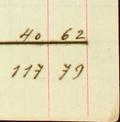 40 62
117 79